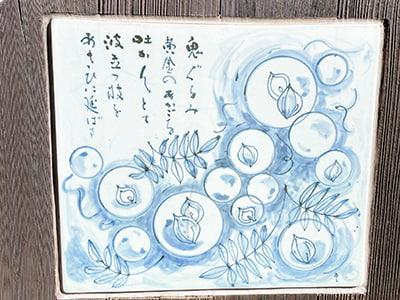 鬼ぐるみ
黄金のあかごを
吐かんとて
波立つ枝を
あさひに延ばす